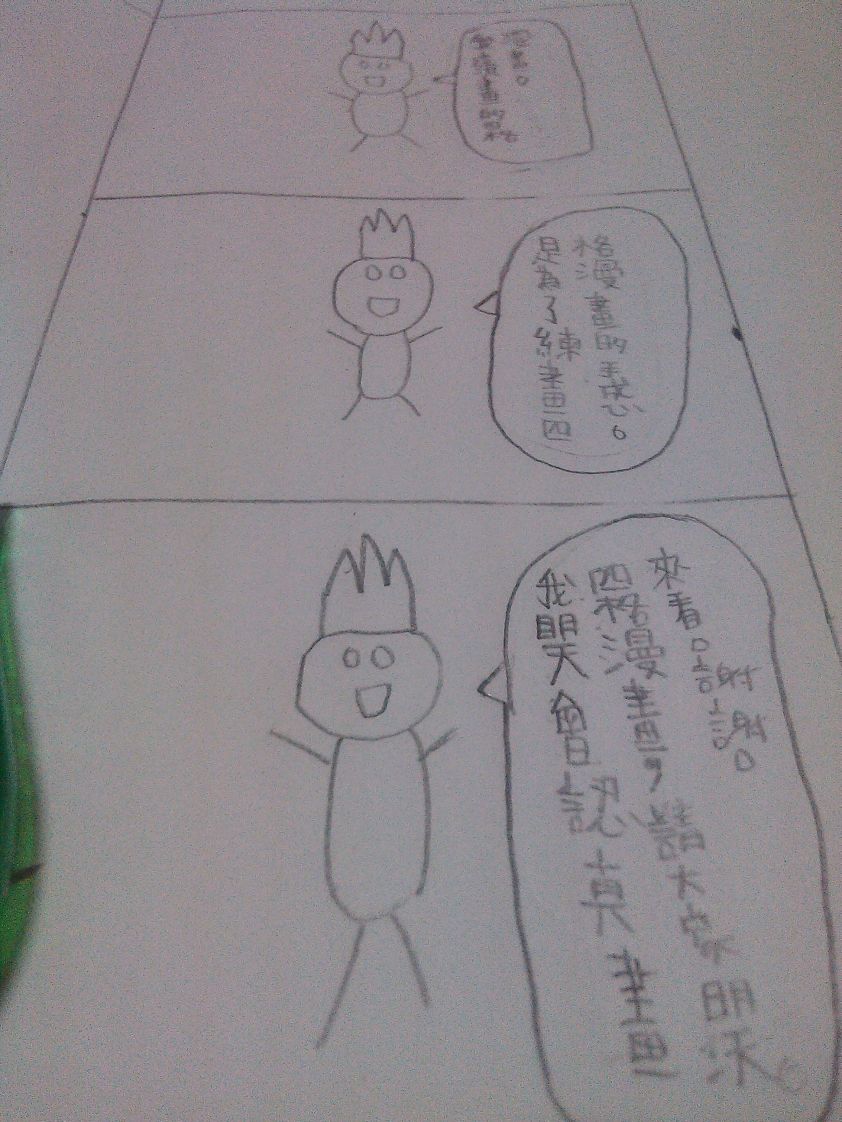 是為了練畫四
格漫畫的感。
我明天會認真畫
四格漫畫，請大家明沃
來看。謝謝。